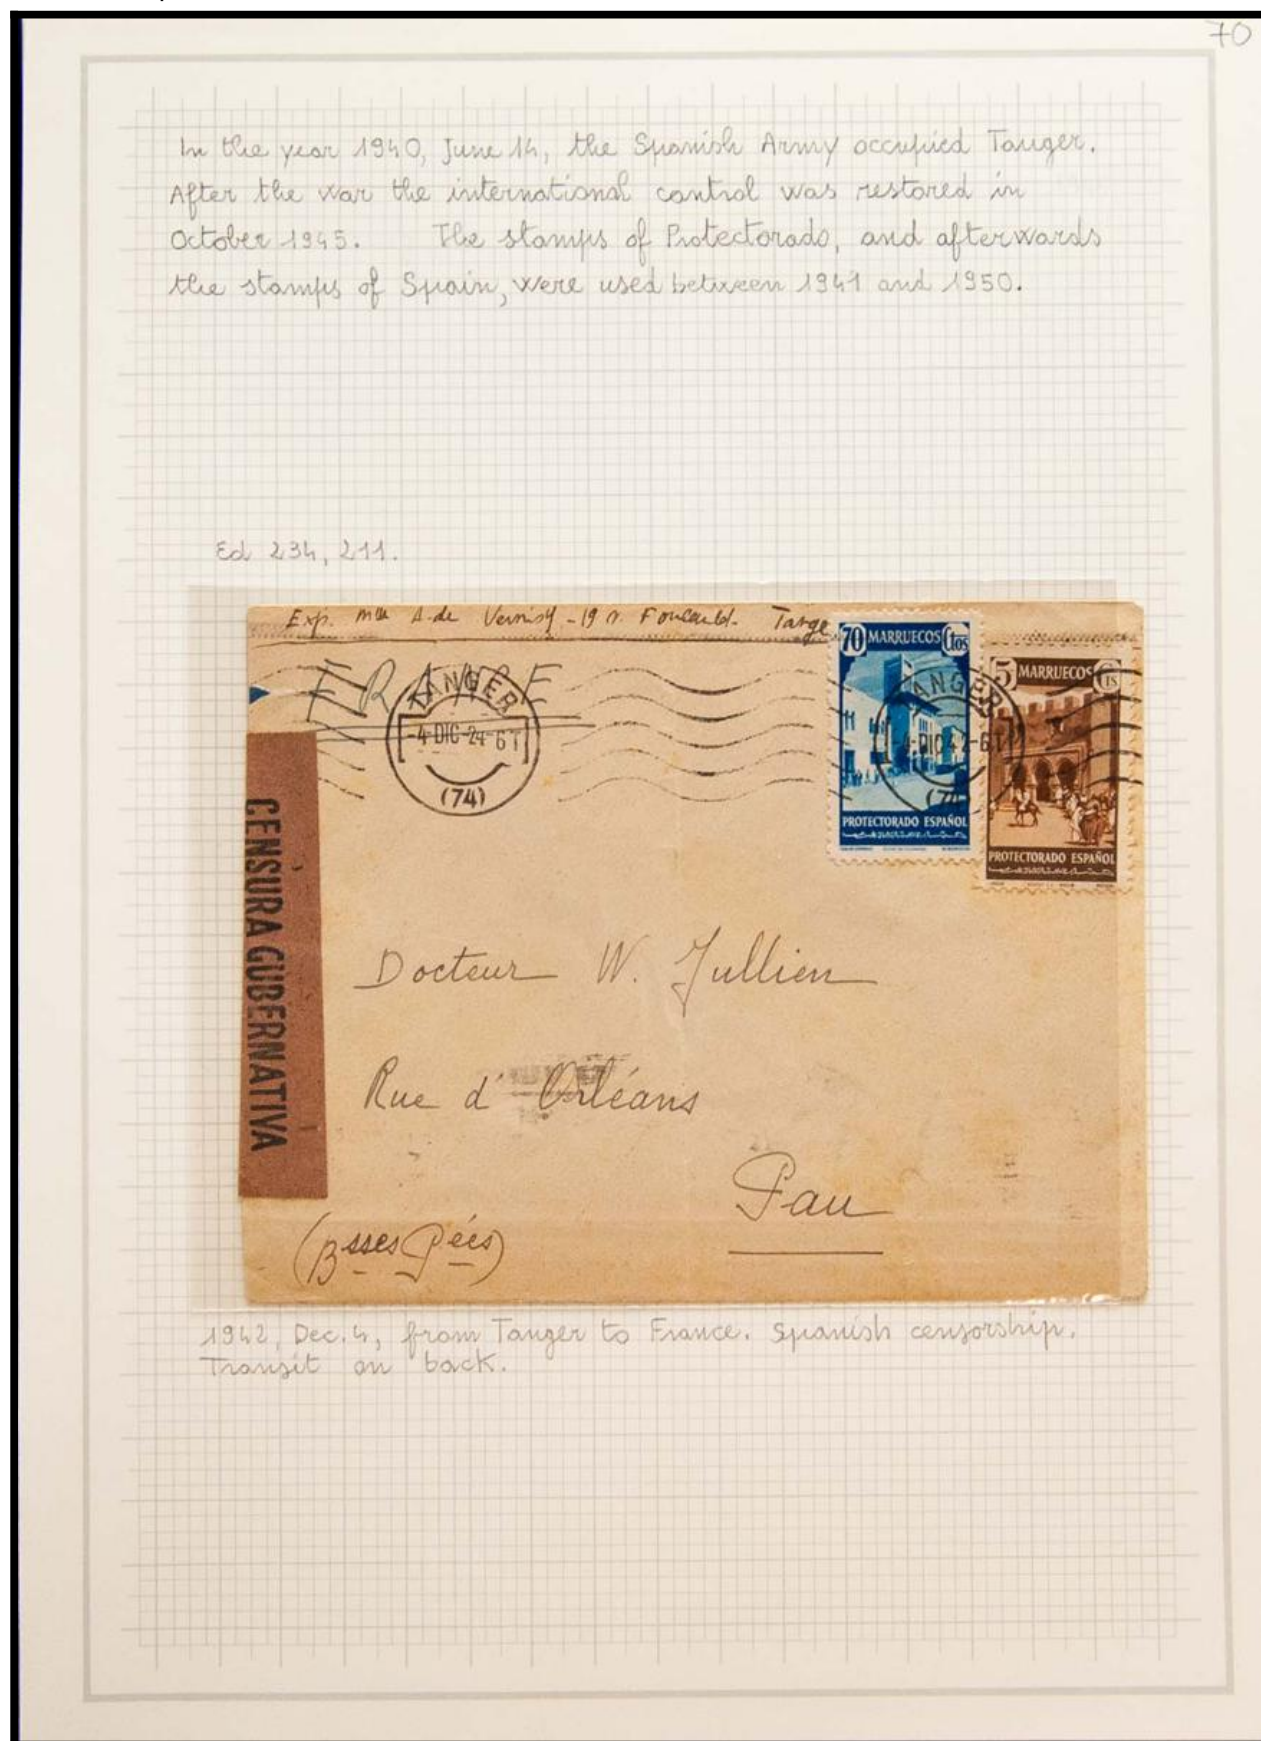 70
In the year 1940, June 14, the Spanish Army occupied Tanger.
After the war the international control was restored in
October 1945. The stamps of Protectorado, and afterwards
the stamps of Spain, were used between 1941 and 1950.
Ed 234, 211.
Exp. Mlle A. de - 19 r. Foucauld. Tange
FRANCE
TANGER
-4-DIC-24-6T
(74)
70 MARRUECOS Ctos
PROTECTORADO ESPAÑOL
5 MARRUECOS Cts
PROTECTORADO ESPAÑOL
TANGER
4-DIC 42-6T
(74)
CENSURA GUBERNATIVA
Docteur W. Jullien
Rue d' Orléans
Pau
(Bsses Pées)
1942, Dec. 4, from Tanger to France. Spanish censorship.
Transit on back.